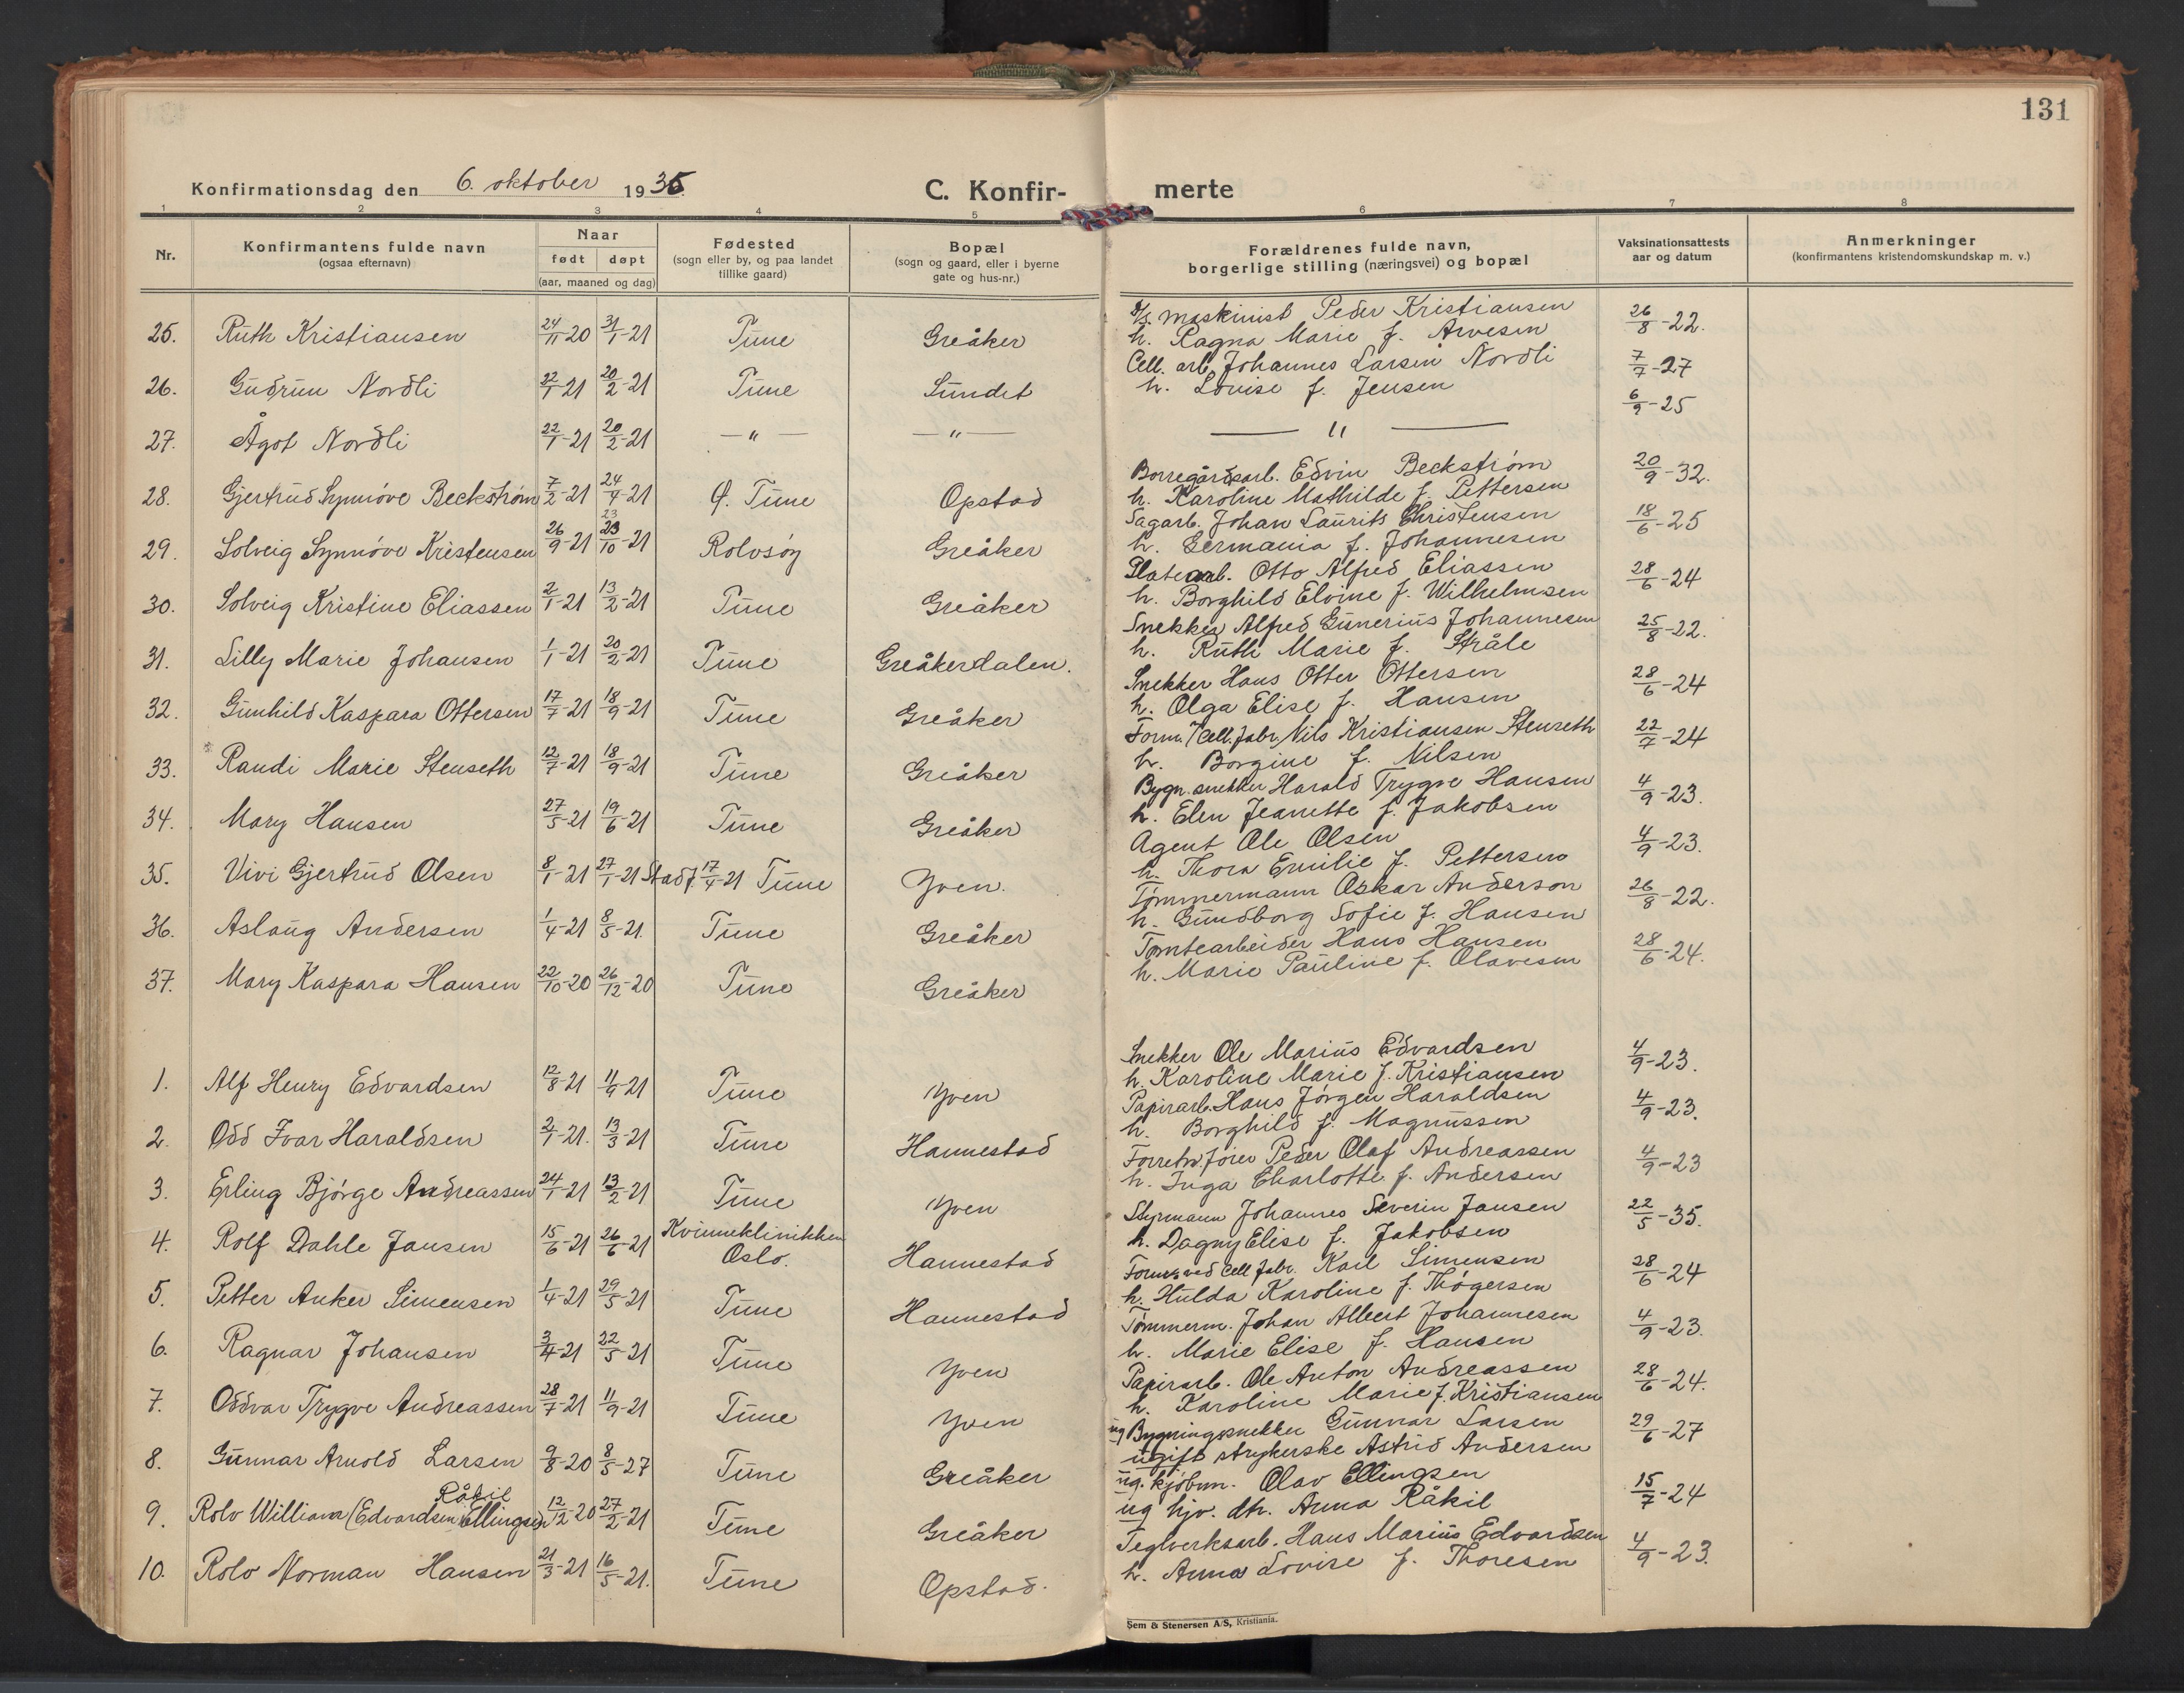 131
Konfirmationsdag den 6. oktober 1935.
C. Konfirmerte
1 2 3 4 5 6 7 8
Nr.
Konfirmantens fulde navn
(ogsaa efternavn)
Naar
født døpt
(aar, maaned og dag)
Fødested
(sogn eller by, og paa landet
tillike gaard)
Bopæl
(sogn og gaard, eller i byerne
gate og hus-nr.)
Forældrenes fulde navn,
borgerlige stilling (næringsvei) og bopæl
Vaksinationsattests
aar og datum
Anmerkninger
(konfirmantens kristendomskundskap m. v.)
maskinist Peder Kristiansen
25. Ruth Kristiansen 24/11-20 31/1-21 Tune Greåker h. Ragna Marie f. Arvesen 26/8-22.
Cell. arb. Johannes Larsen Nordli
26. Gudrun Nordli 22/1-21 20/2-21 Tune Sundet h. Lovise f. Jensen 7/7-27
27. Ågot Nordli 22/1-21 20/2-21 — " — — " — — " — 6/9-25
Borregårdsarb. Edvin Beckstrøm
28. Gjertrud Synnøve Beckstrøm 7/2-21 24/4-21 Ø. Tune Opstad h. Karoline Mathilde f. Pettersen 20/9-32.
Sagarb. Johan Laurits Christensen
29. Solveig Synnøve Kristensen 26/9-21 23/10-21 Rolvsøy Greåker h. Germania f. Johannesen 18/6-25
Platearb. Otto Alfred Eliassen
30. Solveig Kristine Eliassen 2/1-21 13/2-21 Tune Greåker h. Borghild Elvine f. Wilhelmsen 28/6-24
Snekker Alfred Gunerius Johannesen
31. Lilly Marie Johansen 1/1-21 20/2-21 Tune Greåkerdalen. h. Ruth Marie f. Stråle 25/8-22.
Snekker Hans Otter Ottersen
32. Gunhild Kaspara Ottersen 17/7-21 18/9-21 Tune Greåker h. Olga Elise f. Hansen 28/6-24
Form. v/Cell. fabr. Nils Kristiansen Stenseth
33. Randi Marie Stenseth 12/7-21 18/9-21 Tune Greåker h. Borgine f. Nilsen 22/7-24
Bygn. snekker Harald Trygve Hansen
34. Mary Hansen 27/5-21 19/6-21 Tune Greåker h. Elen Jeanette f. Jakobsen 4/9-23.
Agent Ole Olsen
35. Vivi Gjertrud Olsen 8/1-21 27/1-21 Stadf. 17/4-21 Tune Yven. h. Thora Emilie f. Pettersen 4/9-23.
Tømmermann Oskar Anderson
36. Aslaug Andersen 1/4-21 8/5-21. Tune Greåker h. Gundborg Sofie f. Hansen 26/8-22.
Tomtearbeider Hans Hansen
37. Mary Kaspara Hansen 22/10-20 26/12-20 Tune Greåker h. Marie Pauline f. Olavesen 28/6-24.
Snekker Ole Marius Edvardsen
1. Alf Henry Edvardsen 12/8-21 11/9-21 Tune Yven h. Karoline Marie f. Kristiansen 4/9-23.
Papirarb. Hans Jørgen Haraldsen
2. Odd Ivar Haraldsen 2/1-21. 13/3-21 Tune Hannestad h. Borghild f. Magnussen 4/9-23.
Forretn.fører Peder Olaf Andreassen
3. Erling Bjørge Andreassen 24/1-21 13/2-21 Tune Yven h. Inga Charlotte f. Andersen 4/9-23
Styrmann Johannes Severin Jansen
4. Rolf Dahle Jansen 15/6-21 26/6-21 Kvinneklinikken Oslo. Hannestad h. Dagny Elise f. Jakobsen 22/5-35.
Form. ved Cell fabr. Karl Simensen
5. Petter Anker Simensen 1/4-21 29/5-21 Tune Hannestad h. Hulda Karoline f. Thøgersen 28/6-24
Tømmerm. Johan Albert Johannesen
6. Ragnar Johansen 3/4-21 22/5-21 Tune Yven h. Marie Elise f. Hansen 4/9-23.
Papirarb. Ole Anton Andreassen
7. Oddvar Trygve Andreassen 28/7-21 11/9-21 Tune Yven h. Karoline Marie f. Kristiansen 28/6-24.
ug Bygningssnekker Gunnar Larsen
8. Gunnar Arnold Larsen 9/8-20 8/5-27 Tune Greåker ugift strykerske Astrid Andersen 29/6-27
Råkil ug. kjøbm. Olav Ellingsen
9. Rolv William (Edvardsen Ellingsen) 12/12-20 27/2-21 Tune Greåker ug hjv. dtr. Anna Råkil 15/7-24
Teglverksarb. Hans Marius Edvardsen
10. Rolv Norman Hansen 21/3-21 16/5-21. Tune Opstad. h. Anna Lovise f. Thoresen 4/9-23.
Sem & Stenersen A/S, Kristiania.